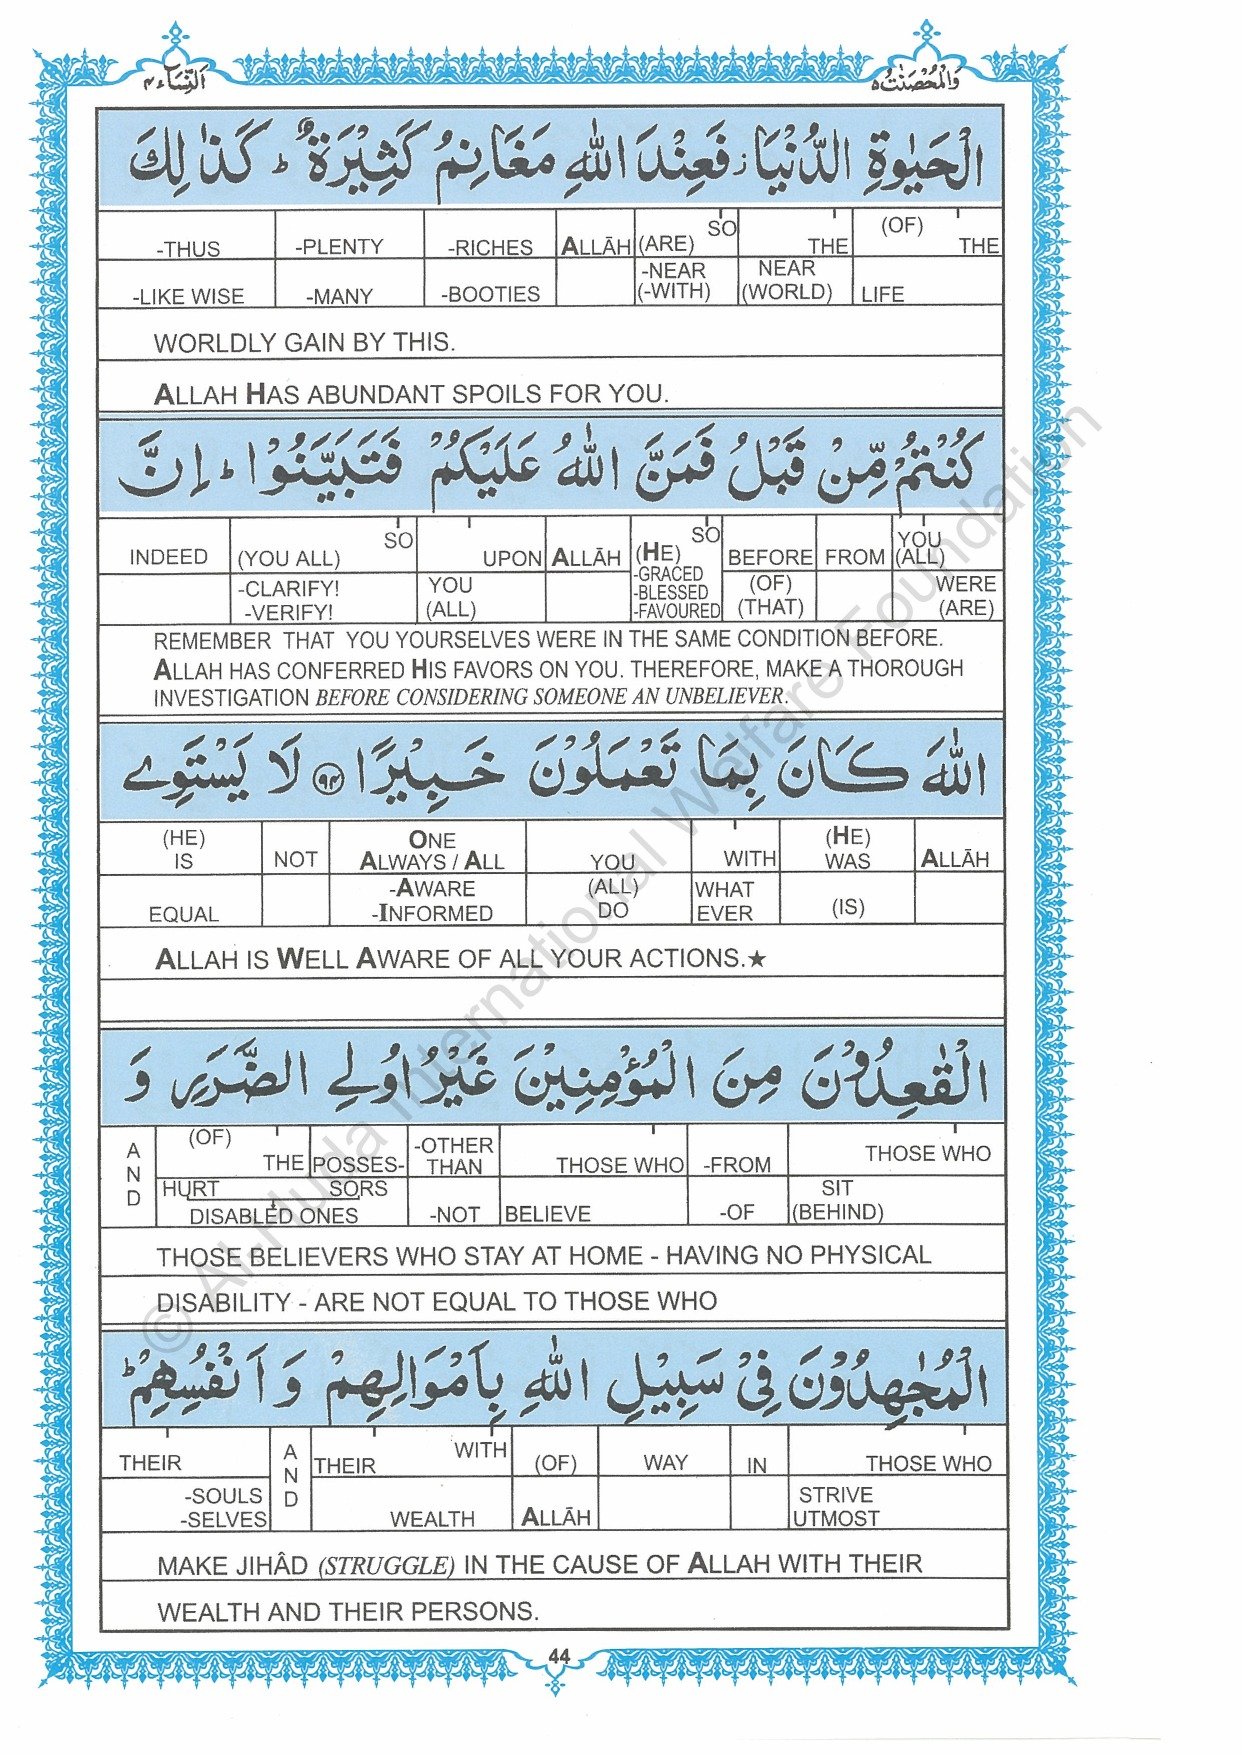 اَلنِّسَآء ٤
وَالْمُحْصَنٰتُ ٥
الْحَيٰوةِ الدُّنْيَا ز فَعِنْدَ اللّٰهِ مَغَانِمُ كَثِيْرَةٌ ط كَذٰلِكَ
-THUS -PLENTY -RICHES ALLĀH (ARE) SO THE (OF) THE
-LIKE WISE -MANY -BOOTIES -NEAR (-WITH) NEAR (WORLD) LIFE
WORLDLY GAIN BY THIS.
ALLAH HAS ABUNDANT SPOILS FOR YOU.
كُنْتُمْ مِّنْ قَبْلُ فَمَنَّ اللّٰهُ عَلَيْكُمْ فَتَبَيَّنُوْا ط اِنَّ
INDEED (YOU ALL) SO UPON ALLĀH SO (HE) BEFORE FROM YOU (ALL)
-CLARIFY! -VERIFY! YOU (ALL) -GRACED -BLESSED -FAVOURED (OF) (THAT) WERE (ARE)
REMEMBER THAT YOU YOURSELVES WERE IN THE SAME CONDITION BEFORE.
ALLAH HAS CONFERRED HIS FAVORS ON YOU. THEREFORE, MAKE A THOROUGH
INVESTIGATION BEFORE CONSIDERING SOMEONE AN UNBELIEVER.
اللّٰهَ كَانَ بِمَا تَعْمَلُوْنَ خَبِيْرًا ٩٤ لَا يَسْتَوِى
(HE) IS NOT ONE ALWAYS / ALL YOU WITH (HE) WAS ALLĀH
EQUAL -AWARE -INFORMED (ALL) DO WHAT EVER (IS)
ALLAH IS WELL AWARE OF ALL YOUR ACTIONS.★
الْقٰعِدُوْنَ مِنَ الْمُؤْمِنِيْنَ غَيْرُ اُولِى الضَّرَرِ وَ
AND (OF) THE POSSES- -OTHER THAN THOSE WHO -FROM THOSE WHO
HURT SORS DISABLED ONES -NOT BELIEVE -OF SIT (BEHIND)
THOSE BELIEVERS WHO STAY AT HOME - HAVING NO PHYSICAL
DISABILITY - ARE NOT EQUAL TO THOSE WHO
الْمُجٰهِدُوْنَ فِىْ سَبِيْلِ اللّٰهِ بِاَمْوَالِهِمْ وَ اَنْفُسِهِمْ ط
THEIR AND THEIR WITH (OF) WAY IN THOSE WHO
-SOULS -SELVES WEALTH ALLĀH STRIVE UTMOST
MAKE JIHÂD (STRUGGLE) IN THE CAUSE OF ALLAH WITH THEIR
WEALTH AND THEIR PERSONS.
44
© Al-Huda International Welfare Foundation